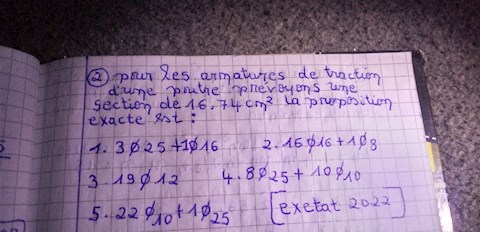 ② pour les armatures de traction
d'une poutre prevoyons une
section de 16.74 cm² la proposition
exacte est :
1. 3ϕ25 + 1ϕ16 2. 16ϕ16 + 1ϕ8
3. 19ϕ12 4. 8ϕ25 + 10ϕ10
5. 22ϕ10 + 1ϕ25 [exetat 2022]